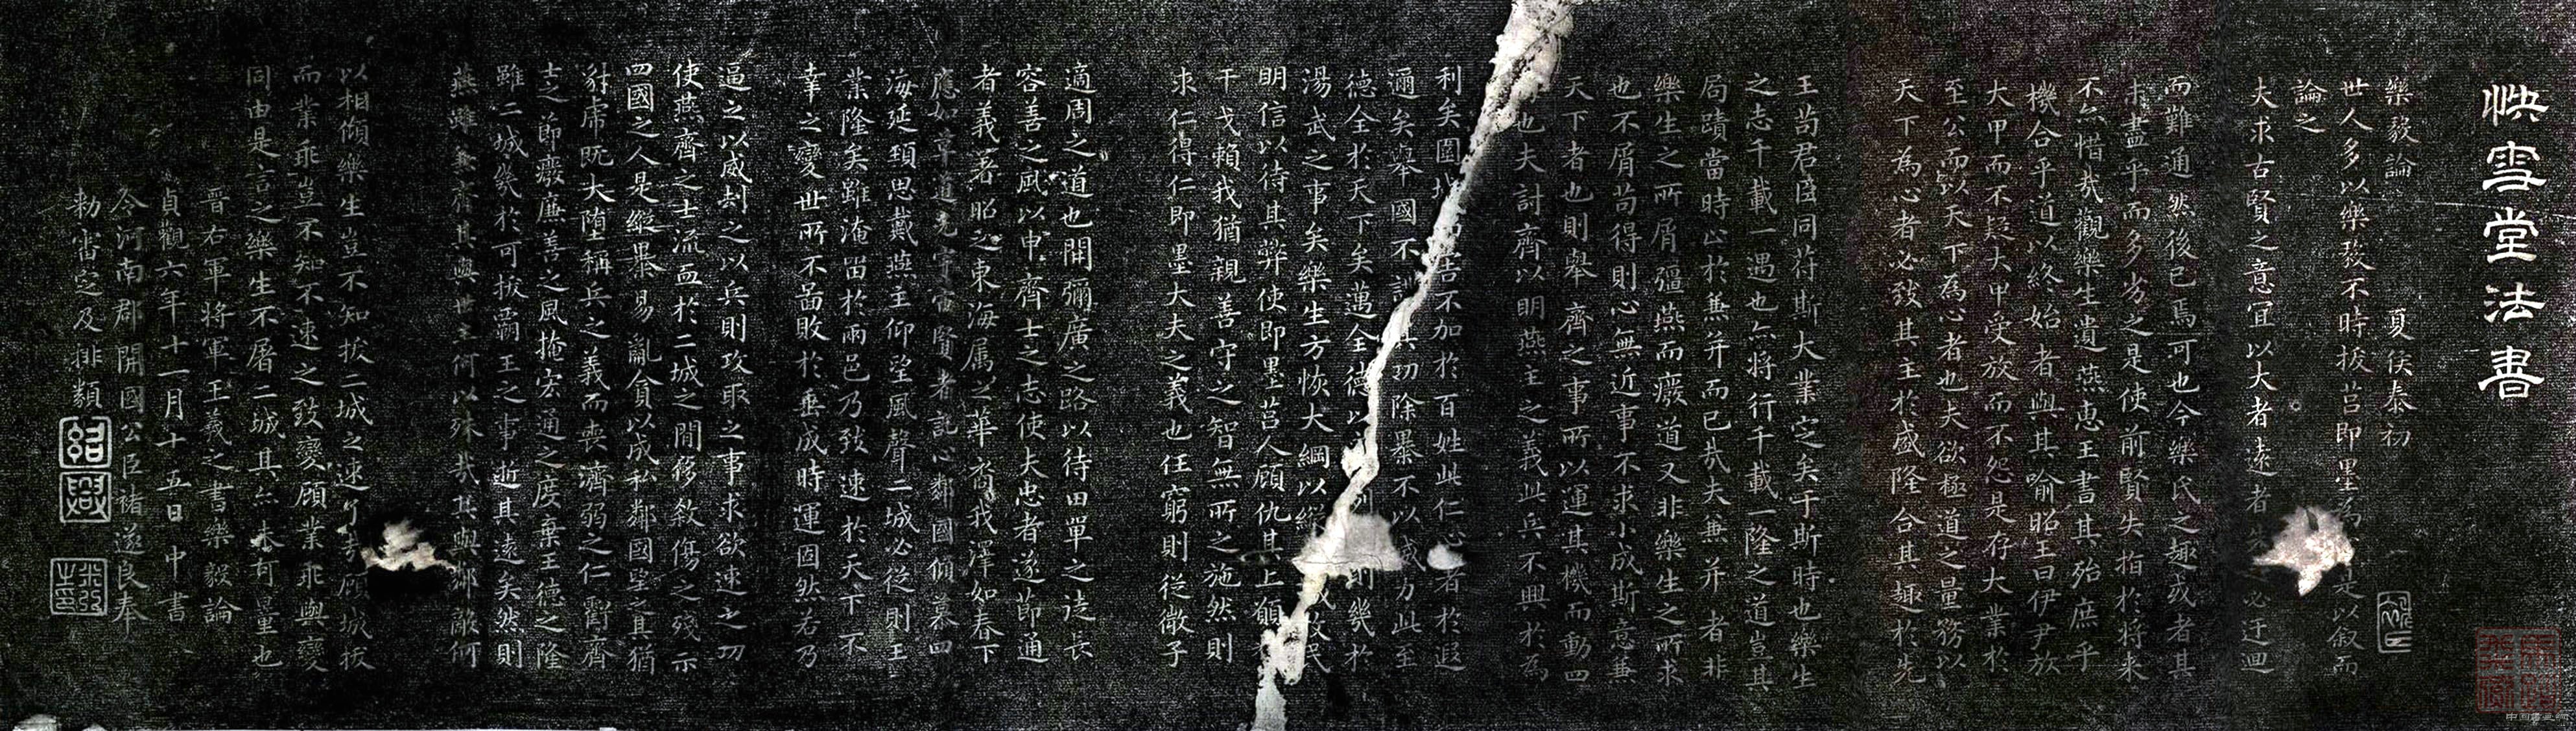 快雪堂法書
樂毅論 夏侯泰初
世人多以樂毅不時拔莒即墨為 是以叙而
論之
夫求古賢之意宜以大者遠者 必迂迴
而難通然後已焉可也今樂氏之趣或者其
未盡乎而多劣之是使前賢失指於將来
不亦惜哉觀樂生遺燕惠王書其殆庶乎
機合乎道以終始者與其喻昭王曰伊尹放
大甲而不疑大甲受放而不怨是存大業於
至公而以天下為心者也夫欲極道之量務以
天下為心者必致其主於盛隆合其趣於先
王苟君臣同符斯大業定矣于斯時也樂生
之志千載一遇也亦將行千載一隆之道豈其
局蹟當時止於兼并而已哉夫兼并者非
樂生之所屑彊燕而廢道又非樂生之所求
也不屑苟得則心無近事不求小成斯意兼
天下者也則舉齊之事所以運其機而動四
也夫討齊以明燕主之義此兵不興於為
利矣圍城 告不加於百姓此仁心著於遐
邇矣舉國不 其功除暴不以威力此至
德全於天下矣萬全德以 則幾於
湯武之事矣樂生方恢大綱以縱 牧民
明信以待其弊使即墨莒人顧仇其上願
干戈賴我猶親善守之智無所之施然則
求仁得仁即墨大夫之義也任窮則從微子
適周之道也開彌廣之路以待田單之徒長
容善之風以申齊士之志使夫忠者遂節通
者義著昭之東海屬之華裔我澤如春下
應如草道光宇宙賢者託心鄰國傾慕四
海延頸思戴燕主仰望風聲二城必從則王
業隆矣雖淹留於兩邑乃致速於天下不
幸之變世所不啚敗於垂成時運固然若乃
逼之以威劫之以兵則攻取之事求欲速之功
使燕齊之士流血於二城之閒侈殺傷之殘示
四國之人是縱暴易亂貪以成私鄰國望之其猶
豺虎既大堕稱兵之義而喪濟弱之仁虧齊
士之節廢廉善之風掩宏通之度棄王德之隆
雖二城幾於可拔霸王之事逝其遠矣然則
燕雖兼齊其與世主何以殊哉其與鄰敵何
以相傾樂生豈不知拔二城之速了哉顧城拔
而業乖豈不知不速之致變顧業乖與變
同由是言之樂生不屠二城其亦未可量也
晉右軍將軍王羲之書樂毅論
貞觀六年十一月十五日中書
令河南郡開國公臣褚遂良奉
勑審定及排類